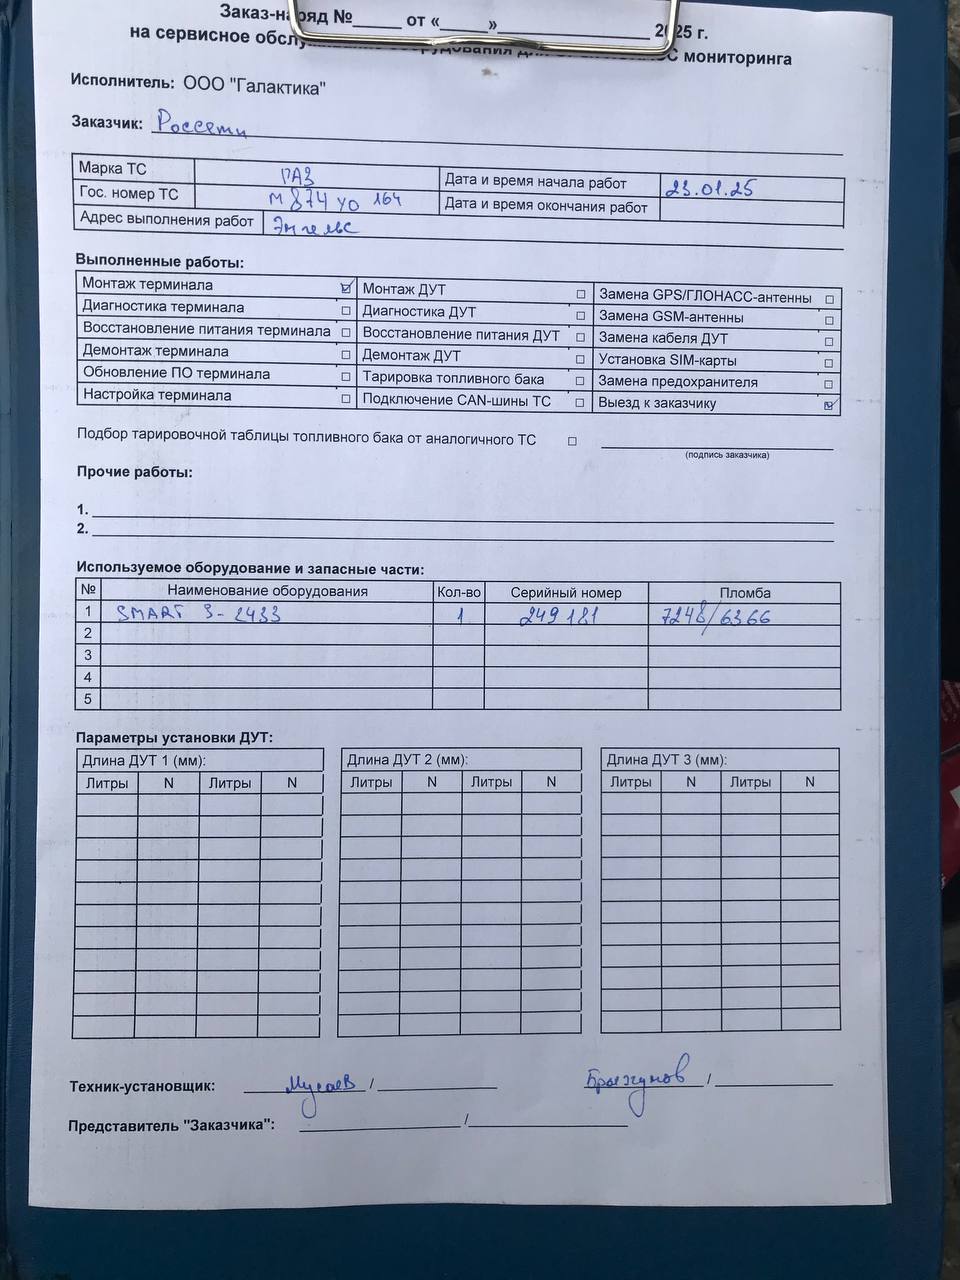 Заказ-наряд №_____ от «_____»__________________ 2025 г.
на сервисное обслу мониторинга
Исполнитель: ООО "Галактика"
Заказчик: Россети
Марка ТС ГАЗ Дата и время начала работ 23.01.25
Гос. номер ТС М 874 УО 164 Дата и время окончания работ
Адрес выполнения работ Энгельс
Выполненные работы:
Монтаж терминала ☑ Монтаж ДУТ ☐ Замена GPS/ГЛОНАСС-антенны ☐
Диагностика терминала ☐ Диагностика ДУТ ☐ Замена GSM-антенны ☐
Восстановление питания терминала ☐ Восстановление питания ДУТ ☐ Замена кабеля ДУТ ☐
Демонтаж терминала ☐ Демонтаж ДУТ ☐ Установка SIM-карты ☐
Обновление ПО терминала ☐ Тарировка топливного бака ☐ Замена предохранителя ☐
Настройка терминала ☐ Подключение CAN-шины ТС ☐ Выезд к заказчику ☑
Подбор тарировочной таблицы топливного бака от аналогичного ТС ☐
(подпись заказчика)
Прочие работы:
1.
2.
Используемое оборудование и запасные части:
№ Наименование оборудования Кол-во Серийный номер Пломба
1 SMART S-2433 1 249181 7248/6366
2
3
4
5
Параметры установки ДУТ:
Длина ДУТ 1 (мм): Длина ДУТ 2 (мм): Длина ДУТ 3 (мм):
Литры N Литры N Литры N Литры N Литры N Литры N
Техник-установщик: Мусаев / Брызгунов /
Представитель "Заказчика": /